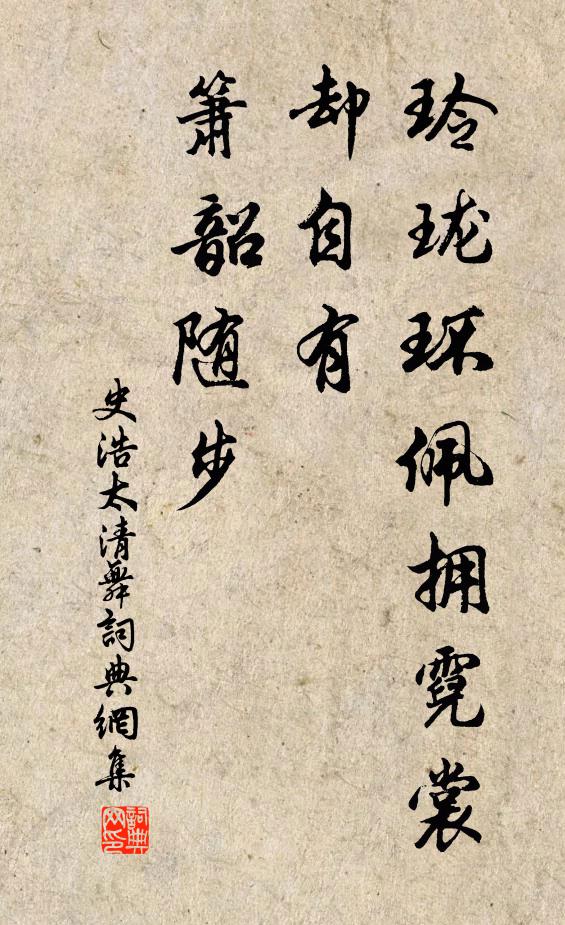 玲珑环佩拥霓裳
却自有
箫韶随步
史浩太清舞詞典網集
詞典网印